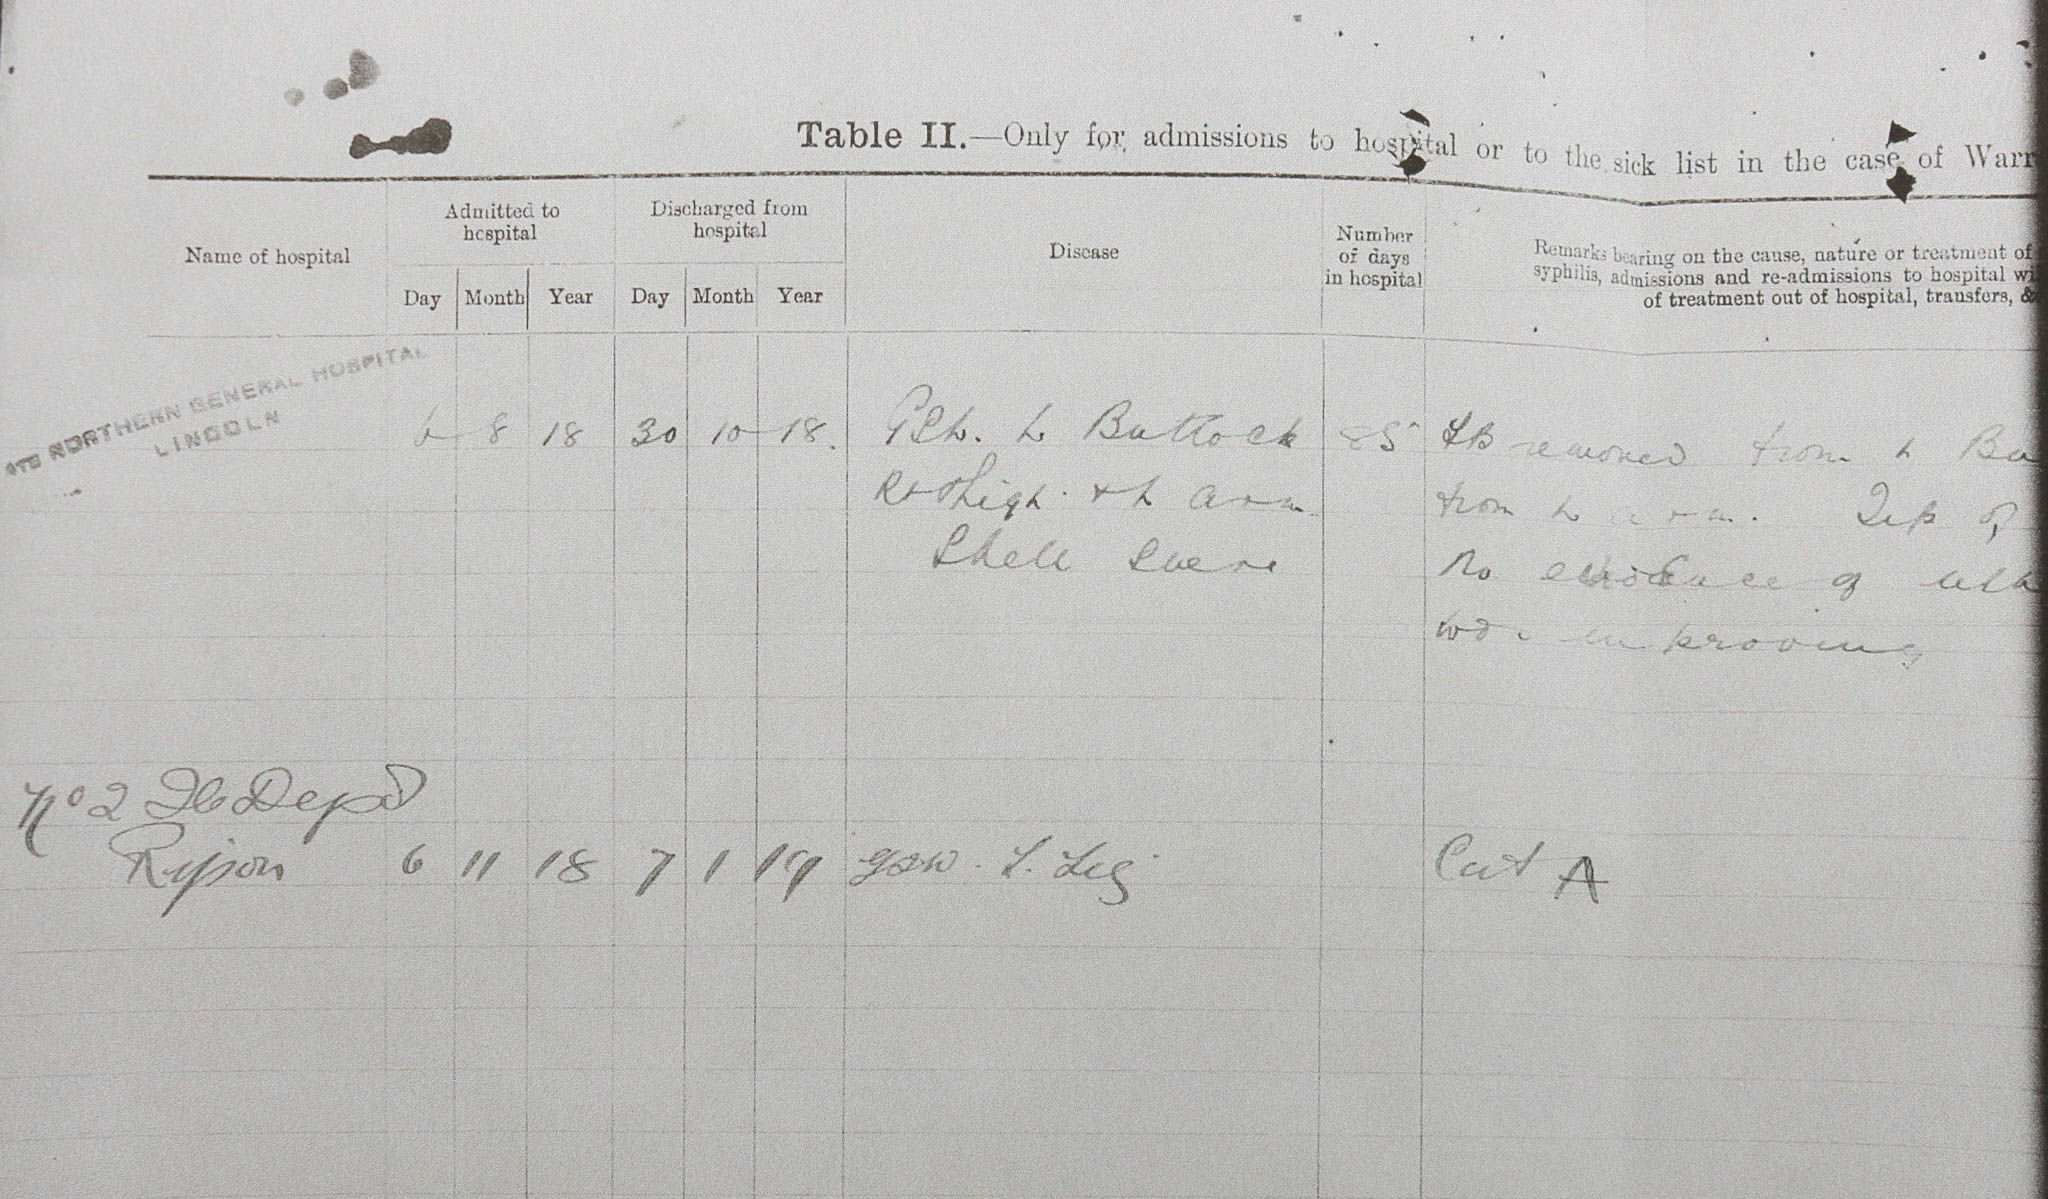 Table II.—Only for admissions to hospital or to the sick list in the case of Warr
Name of hospital
Admitted to
hospital
Day Month Year
Discharged from
hospital
Day Month Year
Disease
Number
of days
in hospital
Remarks bearing on the cause, nature or treatment of
syphilis, admissions and re-admissions to hospital wi
of treatment out of hospital, transfers, &
4TH NORTHERN GENERAL HOSPITAL
LINCOLN
6 8 18 30 10 18. L Buttock 85 FB removed from L Bu
R Thigh + L arm from L arm.
Shell No evidence of
improving
No 2 Depot
Ripon 6 11 18 7 1 19 GSW. L. Leg Cat A